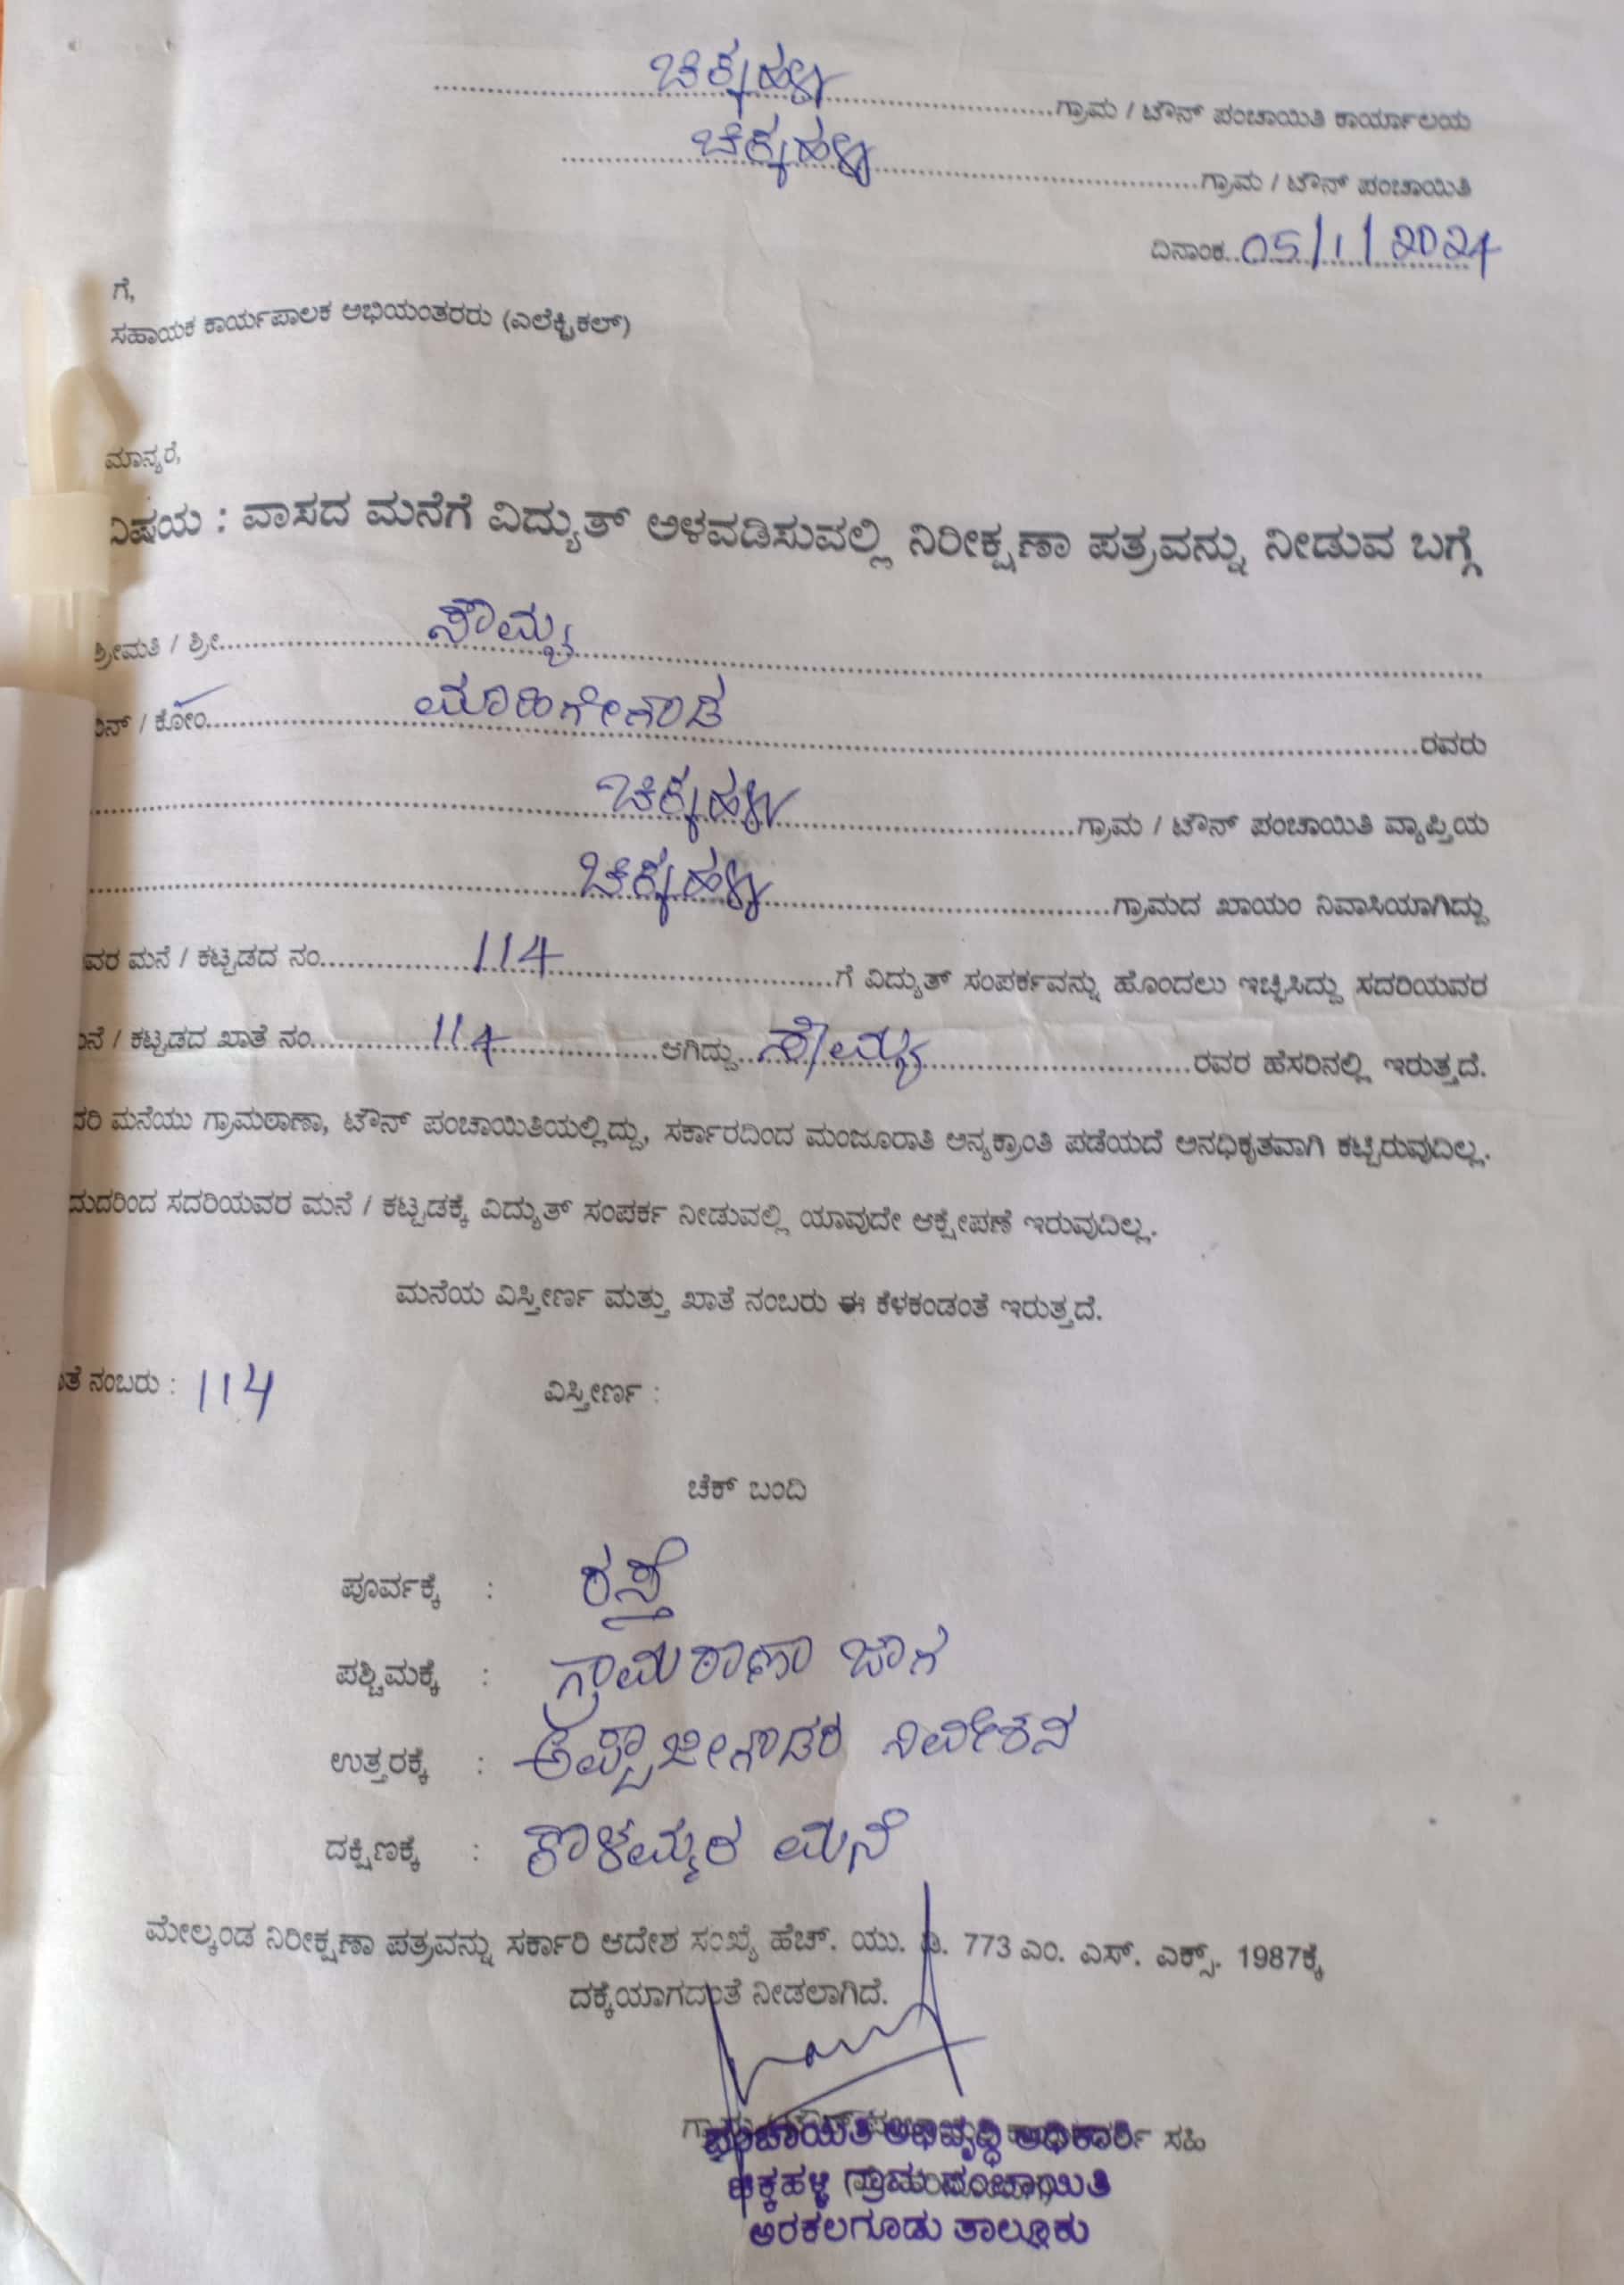 ಚಿಕ್ಕಹಳ್ಳಿ ಗ್ರಾಮ / ಟೌನ್ ಪಂಚಾಯಿತಿ ಕಾರ್ಯಾಲಯ
ಚಿಕ್ಕಹಳ್ಳಿ ಗ್ರಾಮ / ಟೌನ್ ಪಂಚಾಯಿತಿ
ದಿನಾಂಕ 05/11/2024
ಗೆ,
ಸಹಾಯಕ ಕಾರ್ಯಪಾಲಕ ಅಭಿಯಂತರರು (ಎಲೆಕ್ಟ್ರಿಕಲ್)
ಮಾನ್ಯರೆ,
ವಿಷಯ : ವಾಸದ ಮನೆಗೆ ವಿದ್ಯುತ್ ಅಳವಡಿಸುವಲ್ಲಿ ನಿರೀಕ್ಷಣಾ ಪತ್ರವನ್ನು ನೀಡುವ ಬಗ್ಗೆ
ಶ್ರೀಮತಿ / ಶ್ರೀ ಸೌಮ್ಯ
ಬಿನ್ / ಕೋಂ ರವರು
ಚಿಕ್ಕಹಳ್ಳಿ ಗ್ರಾಮ / ಟೌನ್ ಪಂಚಾಯಿತಿ ವ್ಯಾಪ್ತಿಯ
ಚಿಕ್ಕಹಳ್ಳಿ ಗ್ರಾಮದ ಖಾಯಂ ನಿವಾಸಿಯಾಗಿದ್ದು
ವರ ಮನೆ / ಕಟ್ಟಡದ ನಂ 114 ಗೆ ವಿದ್ಯುತ್ ಸಂಪರ್ಕವನ್ನು ಹೊಂದಲು ಇಚ್ಛಿಸಿದ್ದು ಸದರಿಯವರ
ನೆ / ಕಟ್ಟಡದ ಖಾತೆ ನಂ 114 ಆಗಿದ್ದು ಸೌಮ್ಯ ರವರ ಹೆಸರಿನಲ್ಲಿ ಇರುತ್ತದೆ.
ದರಿ ಮನೆಯು ಗ್ರಾಮಠಾಣಾ, ಟೌನ್ ಪಂಚಾಯಿತಿಯಲ್ಲಿದ್ದು, ಸರ್ಕಾರದಿಂದ ಮಂಜೂರಾತಿ ಅನ್ಯಕ್ರಾಂತಿ ಪಡೆಯದೆ ಅನಧಿಕೃತವಾಗಿ ಕಟ್ಟಿರುವುದಿಲ್ಲ.
ದುದರಿಂದ ಸದರಿಯವರ ಮನೆ / ಕಟ್ಟಡಕ್ಕೆ ವಿದ್ಯುತ್ ಸಂಪರ್ಕ ನೀಡುವಲ್ಲಿ ಯಾವುದೇ ಆಕ್ಷೇಪಣೆ ಇರುವುದಿಲ್ಲ.
ಮನೆಯ ವಿಸ್ತೀರ್ಣ ಮತ್ತು ಖಾತೆ ನಂಬರು ಈ ಕೆಳಕಂಡಂತೆ ಇರುತ್ತದೆ.
ತೆ ನಂಬರು : 114 ವಿಸ್ತೀರ್ಣ :
ಚೆಕ್ ಬಂದಿ
ಪೂರ್ವಕ್ಕೆ : ರಸ್ತೆ
ಪಶ್ಚಿಮಕ್ಕೆ : ಗ್ರಾಮಠಾಣಾ ಜಾಗ
ಉತ್ತರಕ್ಕೆ : ಅಪ್ಪಾಜೀಗೌಡರ ನಿವೇಶನ
ದಕ್ಷಿಣಕ್ಕೆ : ಕಾಳಮ್ಮರ ಮನೆ
ಮೇಲ್ಕಂಡ ನಿರೀಕ್ಷಣಾ ಪತ್ರವನ್ನು ಸರ್ಕಾರಿ ಆದೇಶ ಸಂಖ್ಯೆ ಹೆಚ್. ಯು. ಡಿ. 773 ಎಂ. ಎಸ್. ಎಕ್ಸ್. 1987ಕ್ಕೆ
ದಕ್ಕೆಯಾಗದಂತೆ ನೀಡಲಾಗಿದೆ.
ಸಹಿ
ಪಂಚಾಯಿತಿ ಅಭಿವೃದ್ಧಿ ಅಧಿಕಾರಿ
ಚಿಕ್ಕಹಳ್ಳಿ ಗ್ರಾಮ ಪಂಚಾಯಿತಿ
ಅರಕಲಗೂಡು ತಾಲ್ಲೂಕು